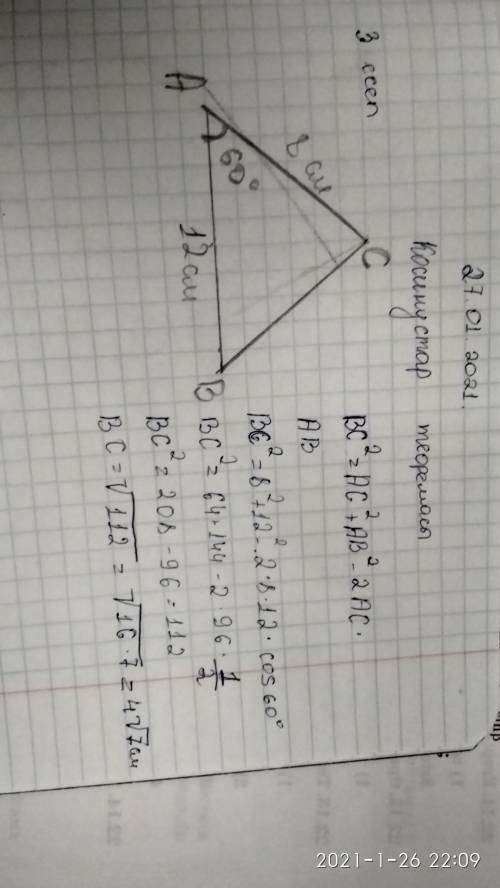 27.01.2021.
Косинустар теоремасы
3 есеп
A
60°
8 см
C
12 см
B
BC² = AC² + AB² - 2AC ·
AB
BC² = 8² + 12² - 2 · 8 · 12 · cos 60°
BC² = 64 + 144 - 2 · 96 · 1/2
BC² = 208 - 96 = 112
BC = √112 = √16·7 = 4√7 см
2021-1-26 22:09